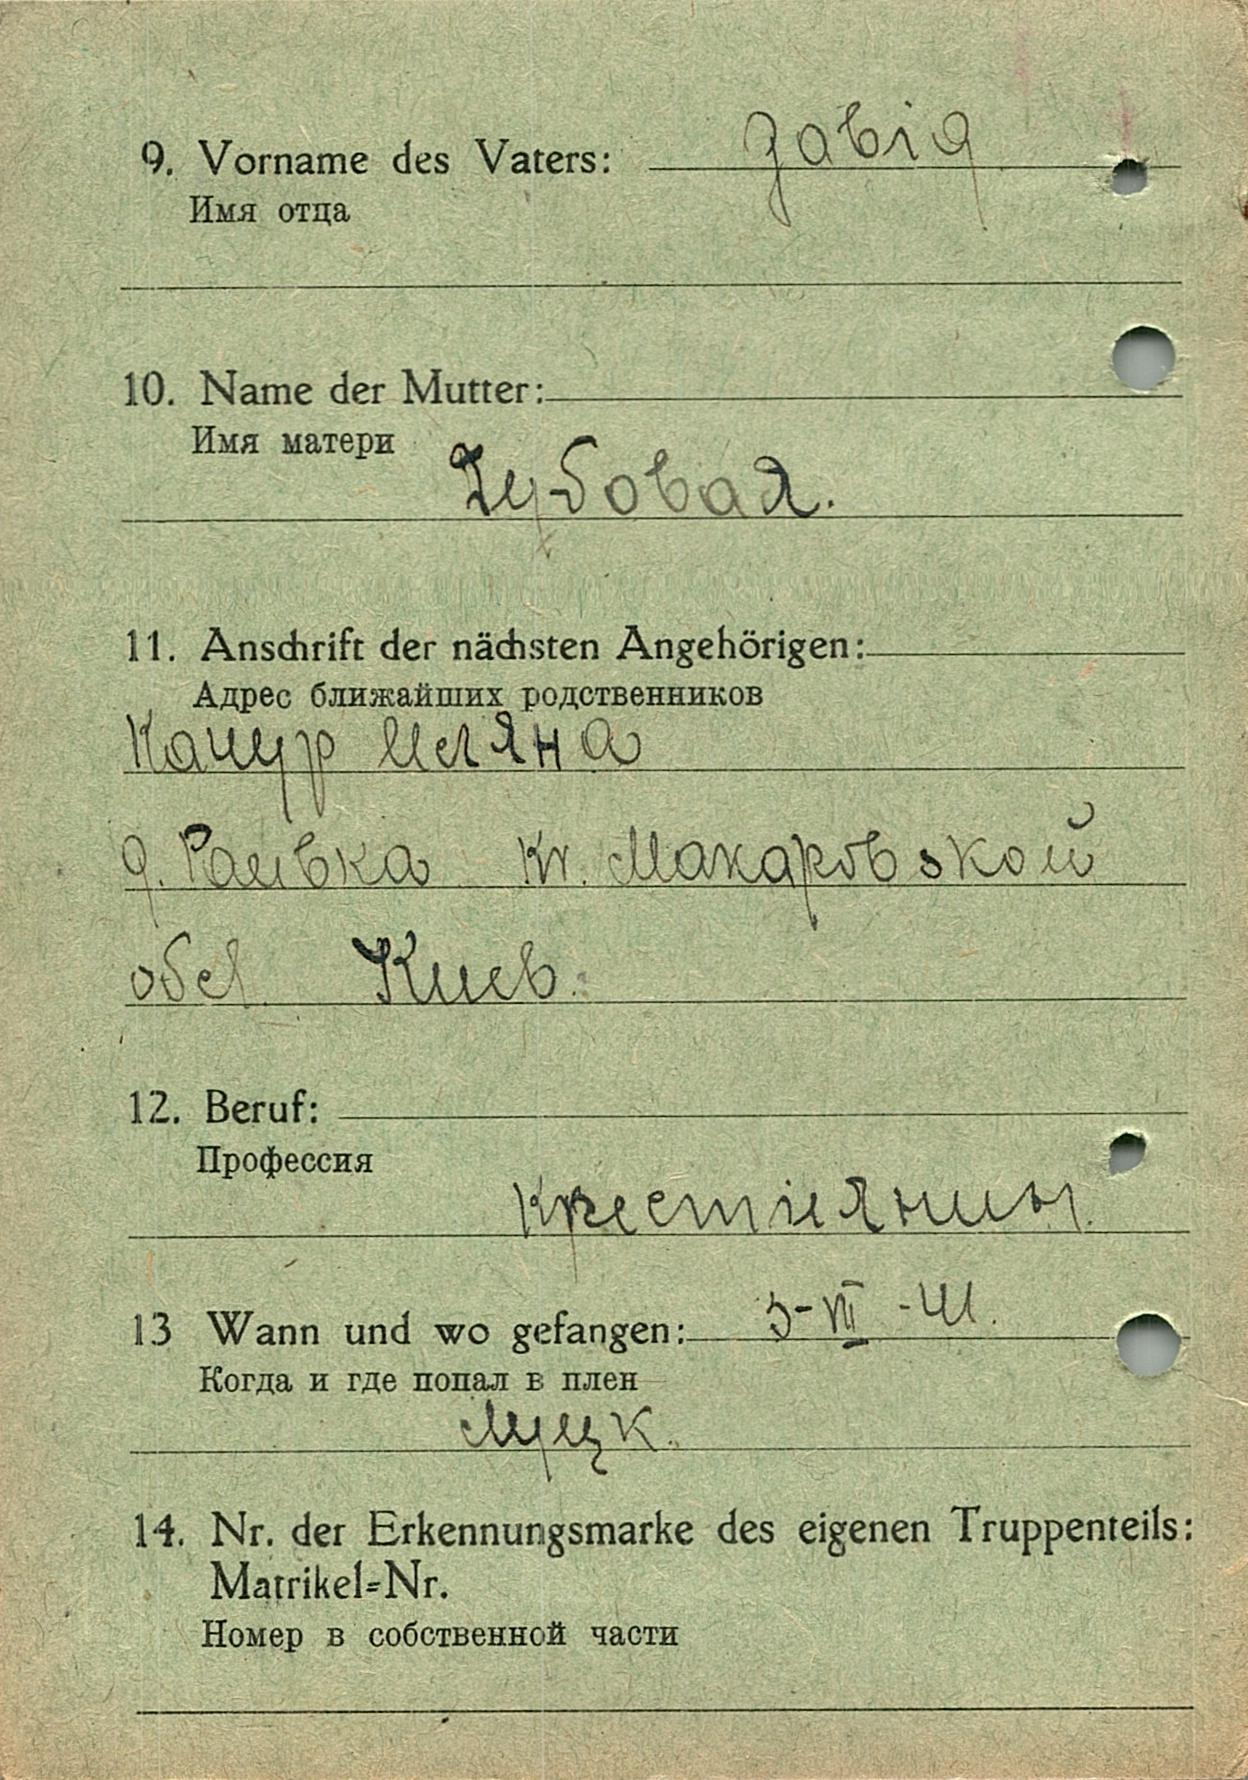 9. Vorname des Vaters: Давід
Имя отца
10. Name der Mutter:
Имя матери
Чубовая.
11. Anschrift der nächsten Angehörigen:
Адрес ближайших родственников
Качур Иляна
д. Раивка кг. Макаровской
обл Киев.
12. Beruf:
Профессия
крестиянин.
13 Wann und wo gefangen: 3-VII-41.
Когда и где попал в плен
Луцк.
14. Nr. der Erkennungsmarke des eigenen Truppenteils:
Matrikel-Nr.
Номер в собственной части